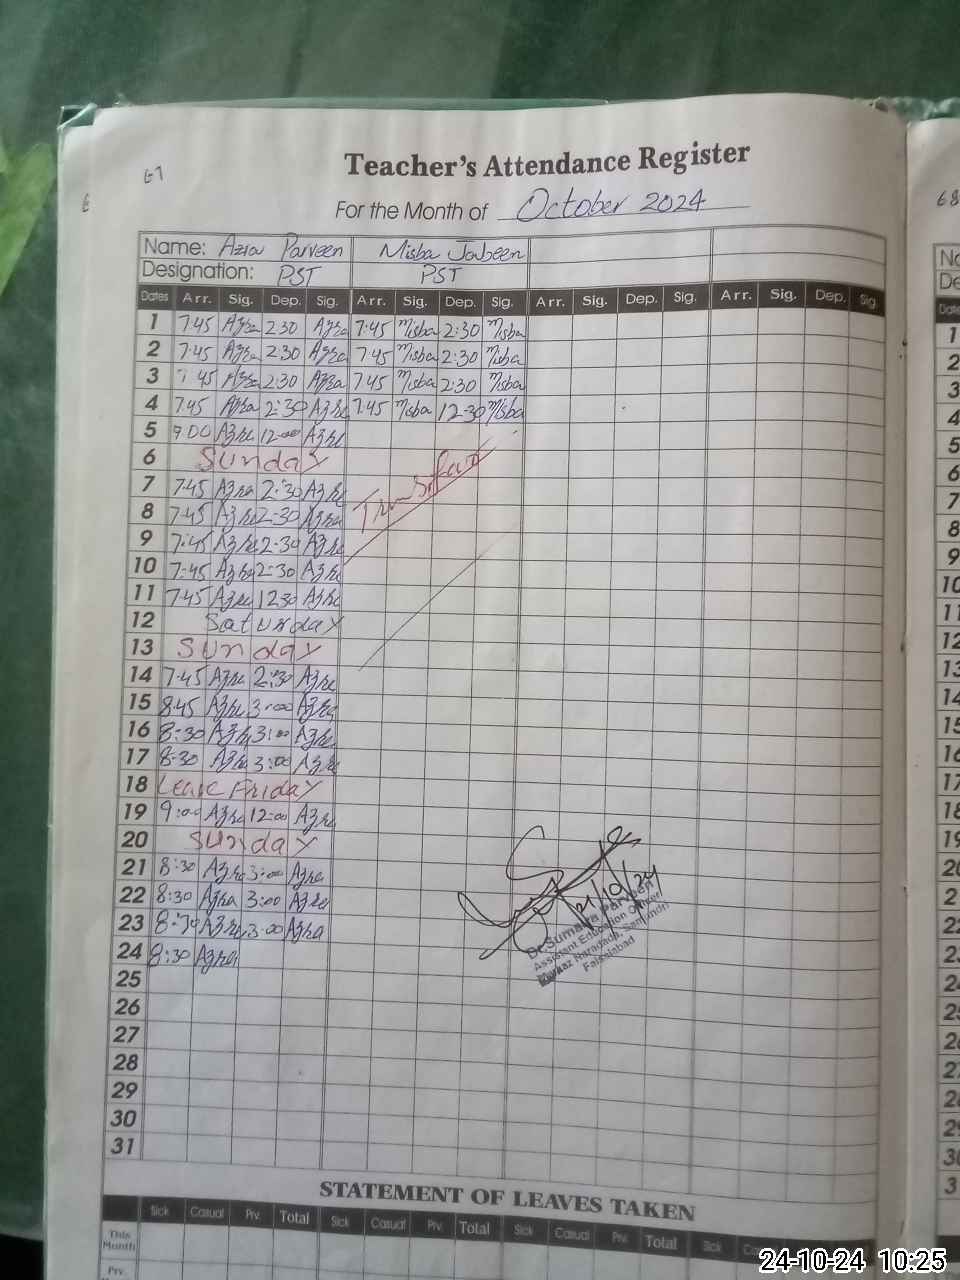 67
Teacher's Attendance Register
For the Month of October 2024
68
Name: Azra Parveen Misba Jabeen
Designation: PST PST
Dates Arr. Sig. Dep. Sig. Arr. Sig. Dep. Sig. Arr. Sig. Dep. Sig. Arr. Sig. Dep. Sig.
1 7:45 Azra 2:30 Azra 7:45 Misba 2:30 Misba
2 7:45 Azra 2:30 Azra 7:45 Misba 2:30 Misba
3 7:45 Azra 2:30 Azra 7:45 Misba 2:30 Misba
4 7:45 Azra 2:30 Azra 7:45 Misba 12:30 Misba
5 9:00 Azra 12:00 Azra
6 Sunday
7 7:45 Azra 2:30 Azra
8 7:45 Azra 2:30 Azra
9 7:45 Azra 2:30 Azra
10 7:45 Azra 2:30 Azra
11 7:45 Azra 12:30 Azra
12 Saturday
13 Sunday
14 7:45 Azra 2:30 Azra
15 8:45 Azra 3:00 Azra
16 8:30 Azra 3:00 Azra
17 8:30 Azra 3:00 Azra
18 Leave Friday
19 9:00 Azra 12:00 Azra
20 Sunday
21 8:30 Azra 3:00 Azra
22 8:30 Azra 3:00 Azra
23 8:30 Azra 3:00 Azra
24 8:30 Azra
25
26
27
28
29
30
31
21/10/24
Dr. Sumaira Parveen
Assistant Education Officer
Markaz Naradada, Samundri
Faisalabad
STATEMENT OF LEAVES TAKEN
Sick Casual Prv. Total Sick Casual Prv. Total Sick Casual Prv. Total Sick
This Month
Prv.
24-10-24 10:25